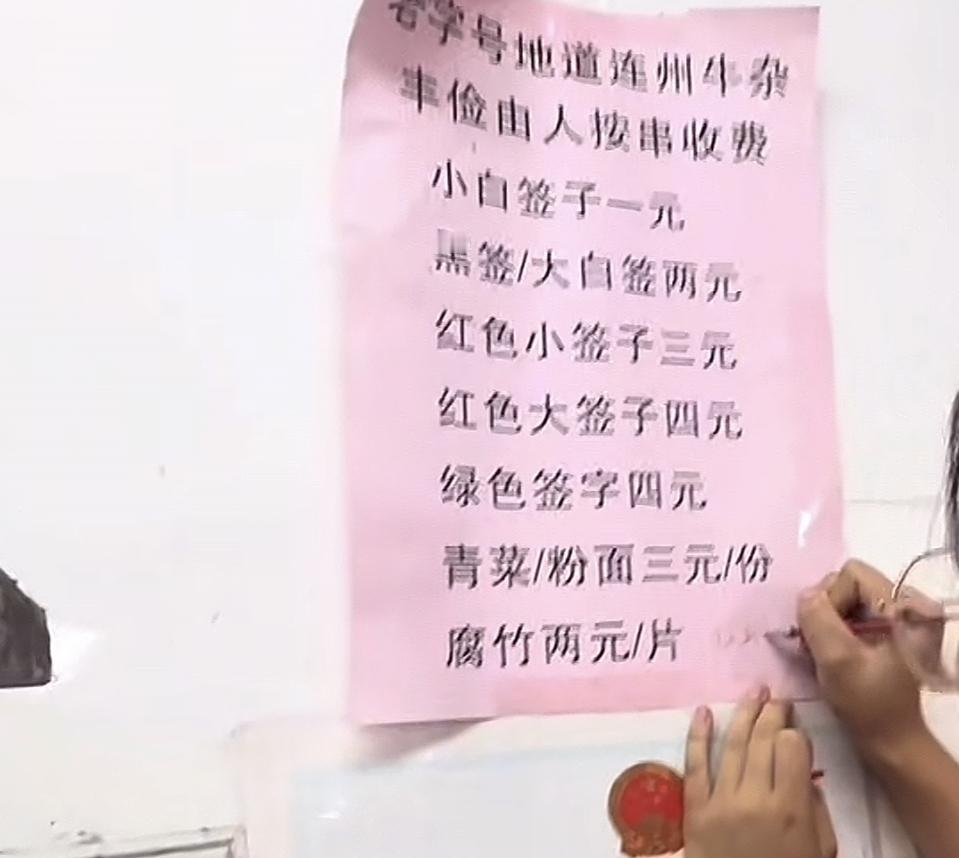 老字号地道连州牛杂
丰俭由人按串收费
小白签子一元
黑签/大白签两元
红色小签子三元
红色大签子四元
绿色签字四元
青菜/粉面三元/份
腐竹两元/片